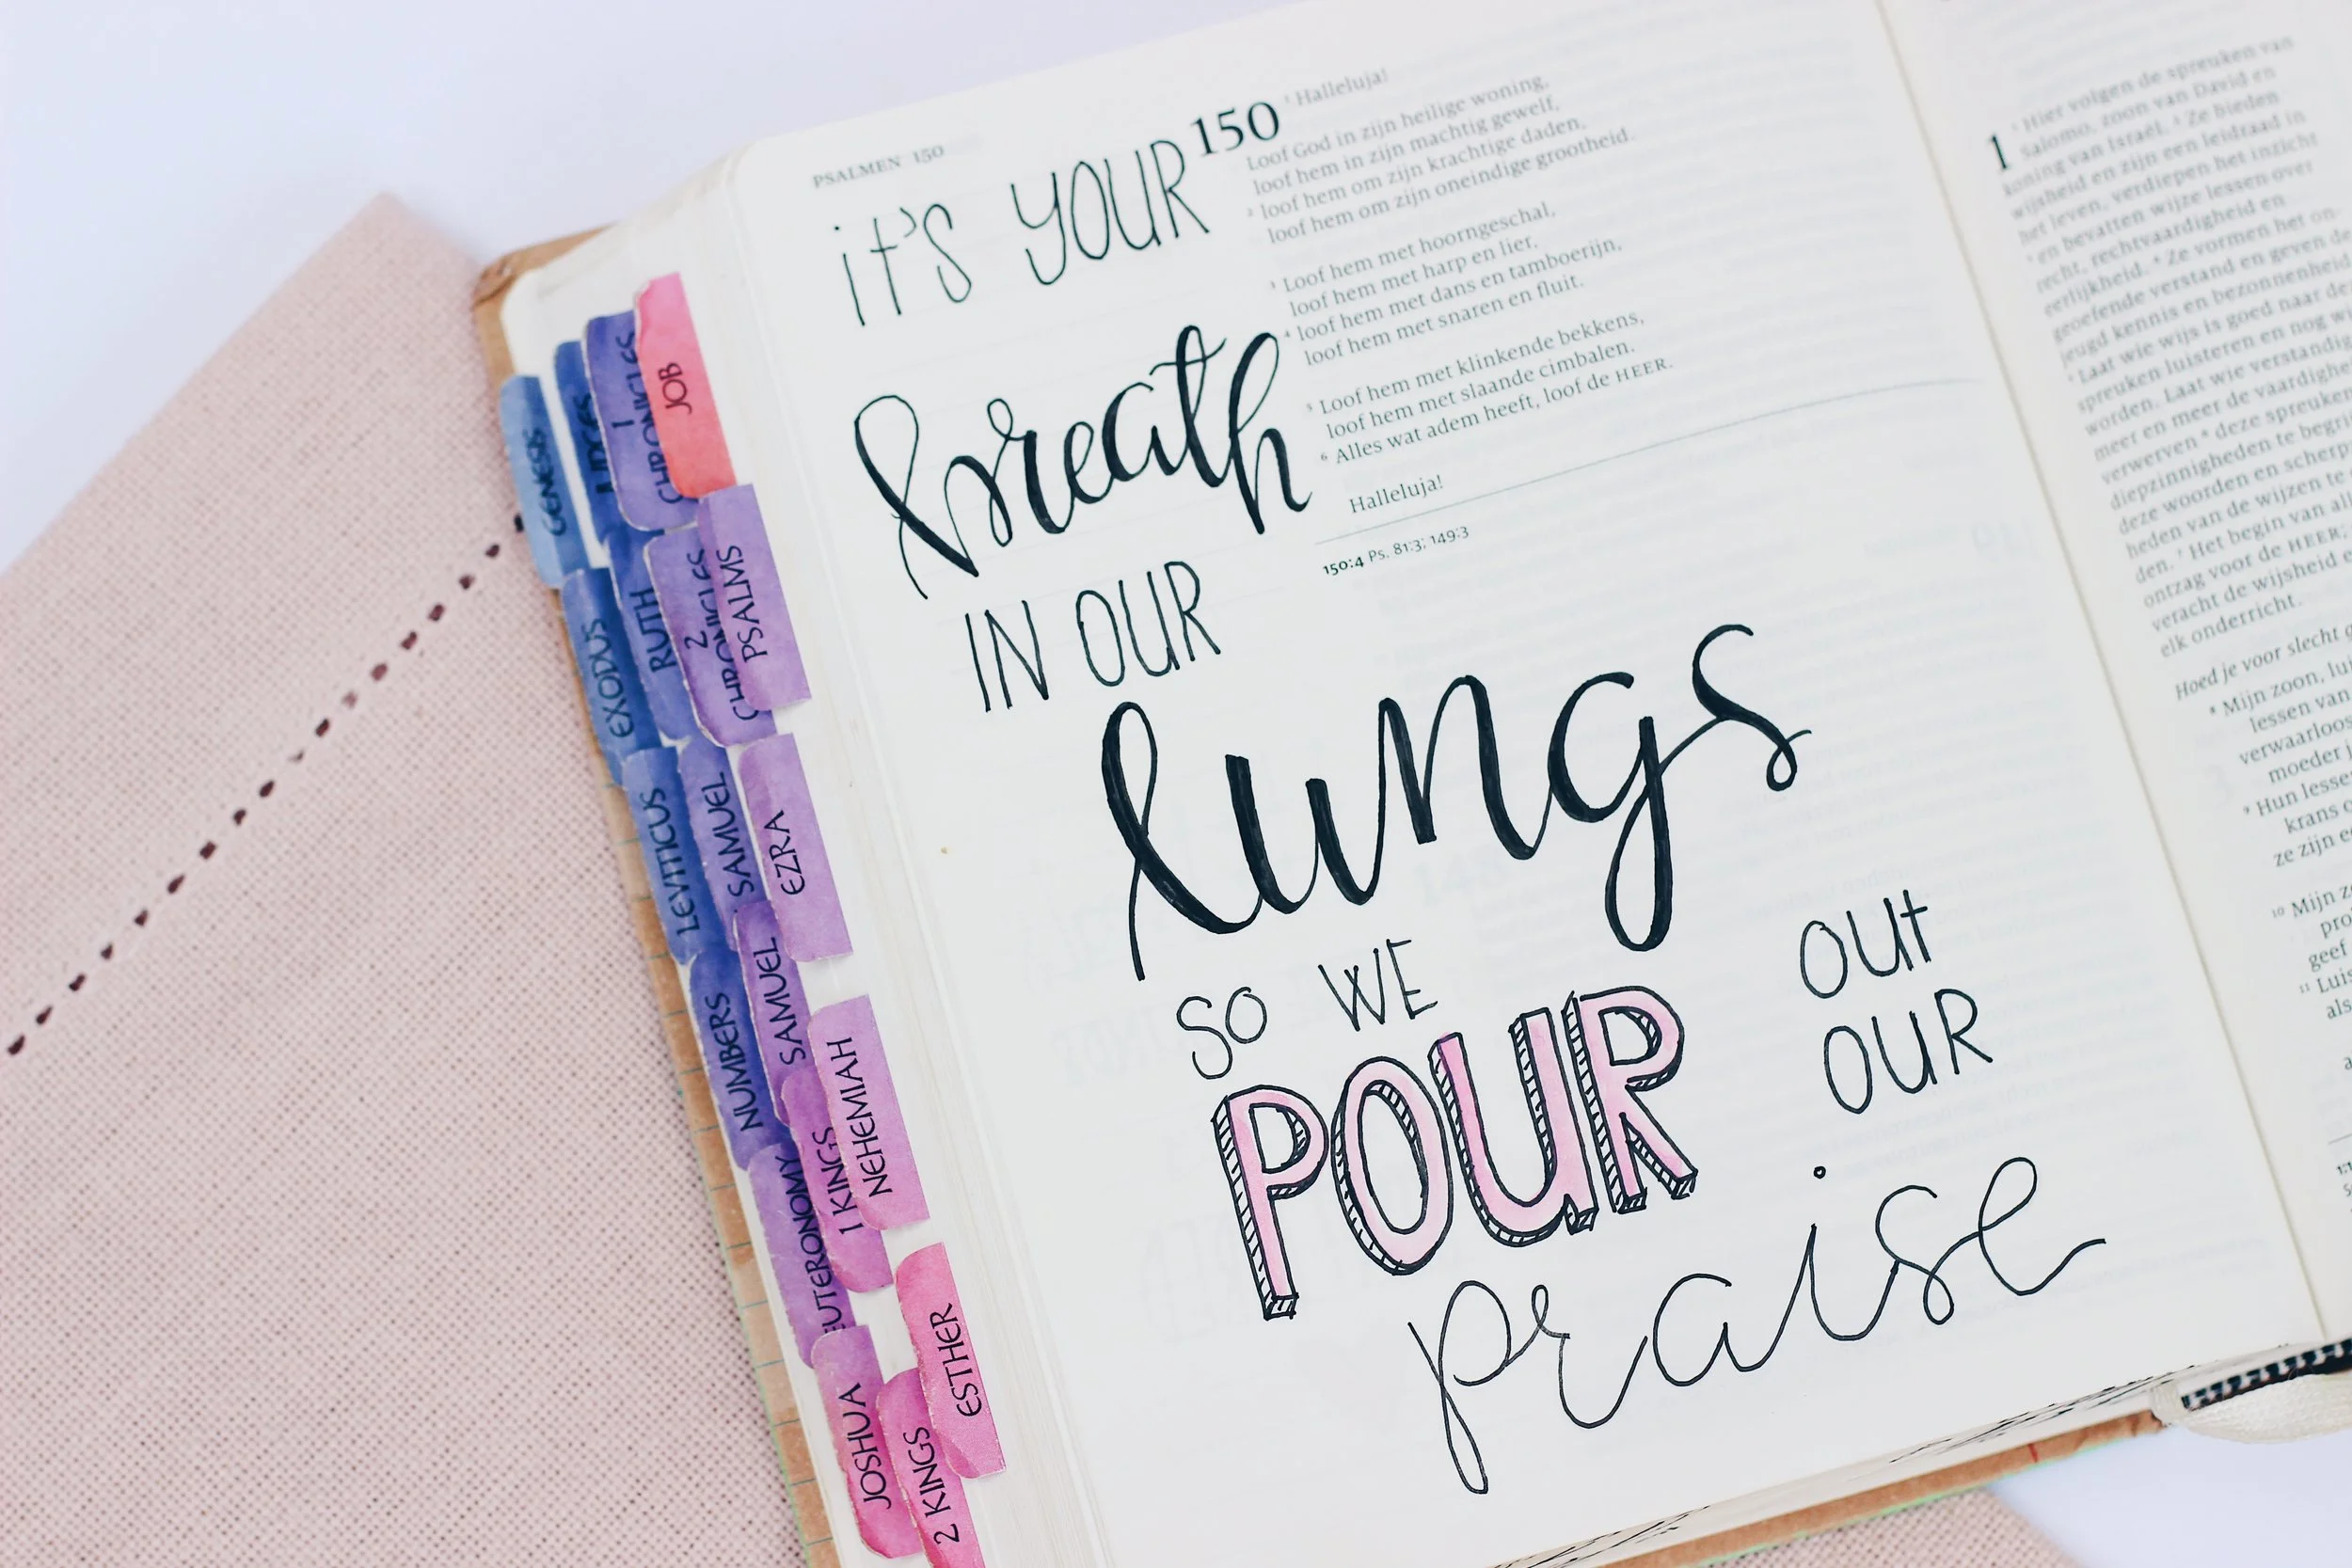 PSALMEN 150
it's YOUR
breath
IN OUR
lungs
SO WE
POUR
OUt
OUR
praise
150
¹ Halleluja!
Loof God in zijn heilige woning,
loof hem in zijn machtig gewelf,
² loof hem om zijn krachtige daden,
loof hem om zijn oneindige grootheid.
³ Loof hem met hoorngeschal,
loof hem met harp en lier.
⁴ loof hem met dans en tamboerijn,
loof hem met snaren en fluit.
⁵ Loof hem met klinkende bekkens,
loof hem met slaande cimbalen.
⁶ Alles wat adem heeft, loof de HEER.
Halleluja!
150:4 Ps. 81:3; 149:3
GENESIS
EXODUS
LEVITICUS
NUMBERS
EUTERONOMY
JOSHUA
JUDGES
RUTH
SAMUEL
SAMUEL
1 KINGS
2 KINGS
1 CHRONICLES
2 CHRONICLES
EZRA
NEHEMIAH
ESTHER
JOB
PSALMS
1
¹ Hier volgen de spreuken van
Salomo, zoon van David en
koning van Israël. ² Ze bieden
wijsheid en zijn een leidraad in
het leven, verdiepen het inzicht
³ en bevatten wijze lessen over
recht, rechtvaardigheid en
eerlijkheid. ⁴ Ze vormen het on-
geoefende verstand en geven de
jeugd kennis en bezonnenheid
⁵ Laat wie wijs is goed naar de
spreuken luisteren en nog w
worden. Laat wie verstandig
meer en meer de vaardighe
verwerven ⁶ deze spreuken
diepzinnigheden te begri
deze woorden en scherp
heden van de wijzen te
den. ⁷ Het begin van al
ontzag voor de HEER,
veracht de wijsheid e
elk onderricht.
Hoed je voor slecht g
⁸ Mijn zoon, lui
lessen van
verwaarloos
moeder j
⁹ Hun lesse
krans
ze zijn e
¹⁰ Mijn z
pro
geef
¹¹ Luis
als